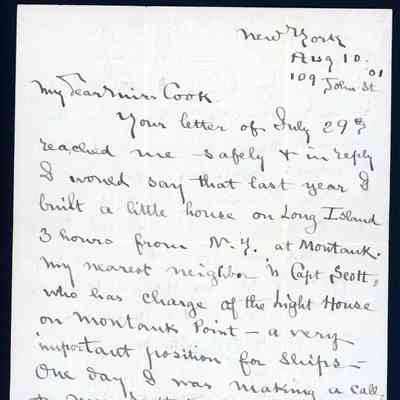 New York
Aug 10.
'01
109 John St
My Dear Miss Cook
Your letter of July 29th
reached me safely & in reply
I would say that last year I
built a little house on Long Island
3 hours from N.Y. at Montauk.
My nearest neighbor is Capt Scott,
who has charge of the Light House
on Montauk Point – a very
important position for ships –
One day I was making a call